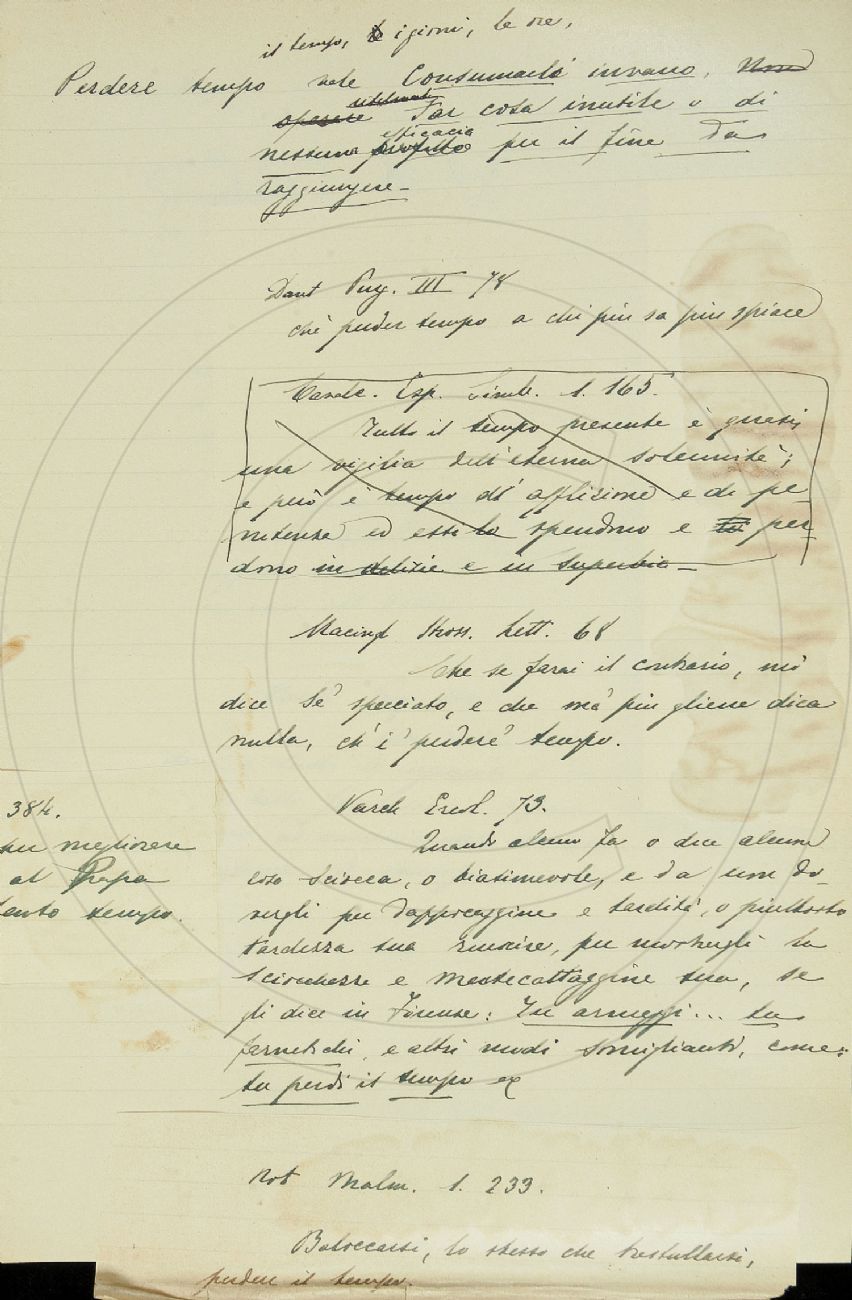 il tempo, i giorni, le ore,
Perdere tempo vale Consumarlo invano. Non
operare utilmente Far cosa inutile o di
nessuna profitto efficacia per il fine da
raggiungere –
Dant Purg. III 78
chè perder tempo a chi più sa più spiace
Cavalc. Esp. Simb. 1. 165.
Tutto il tempo presente è quasi
una vigilia dell'eterna solennità;
e però è tempo d'afflizione e di pe-
nitenza ed essi lo spendono e per
dono in delizie e in superbia –
Macingh Stroz. Lett. 68
Che se farai il contrario, mi
dice s'è spacciato, e che mà più gliene dica
nulla, ch'i' perderè tempo.
384.
migliorare
al Papa
tanto tempo.
Varch Ercol. 73.
Quando alcuno fa o dice alcuna
cosa sciocca, o biasimevole, e da non do-
vergli per dappocaggine e tardità, o piuttosto
tardezza sua riuscire, per mostrargli la
sciocchezza e mentecattaggine sua, se
gli dice in Firenze: Tu armeggi... tu
farnetichi, e altri modi somiglianti, come:
tu perdi il tempo ec
Not Malm. 1. 233.
Baloccarsi, lo stesso che trastullarsi,
perdere il tempo.